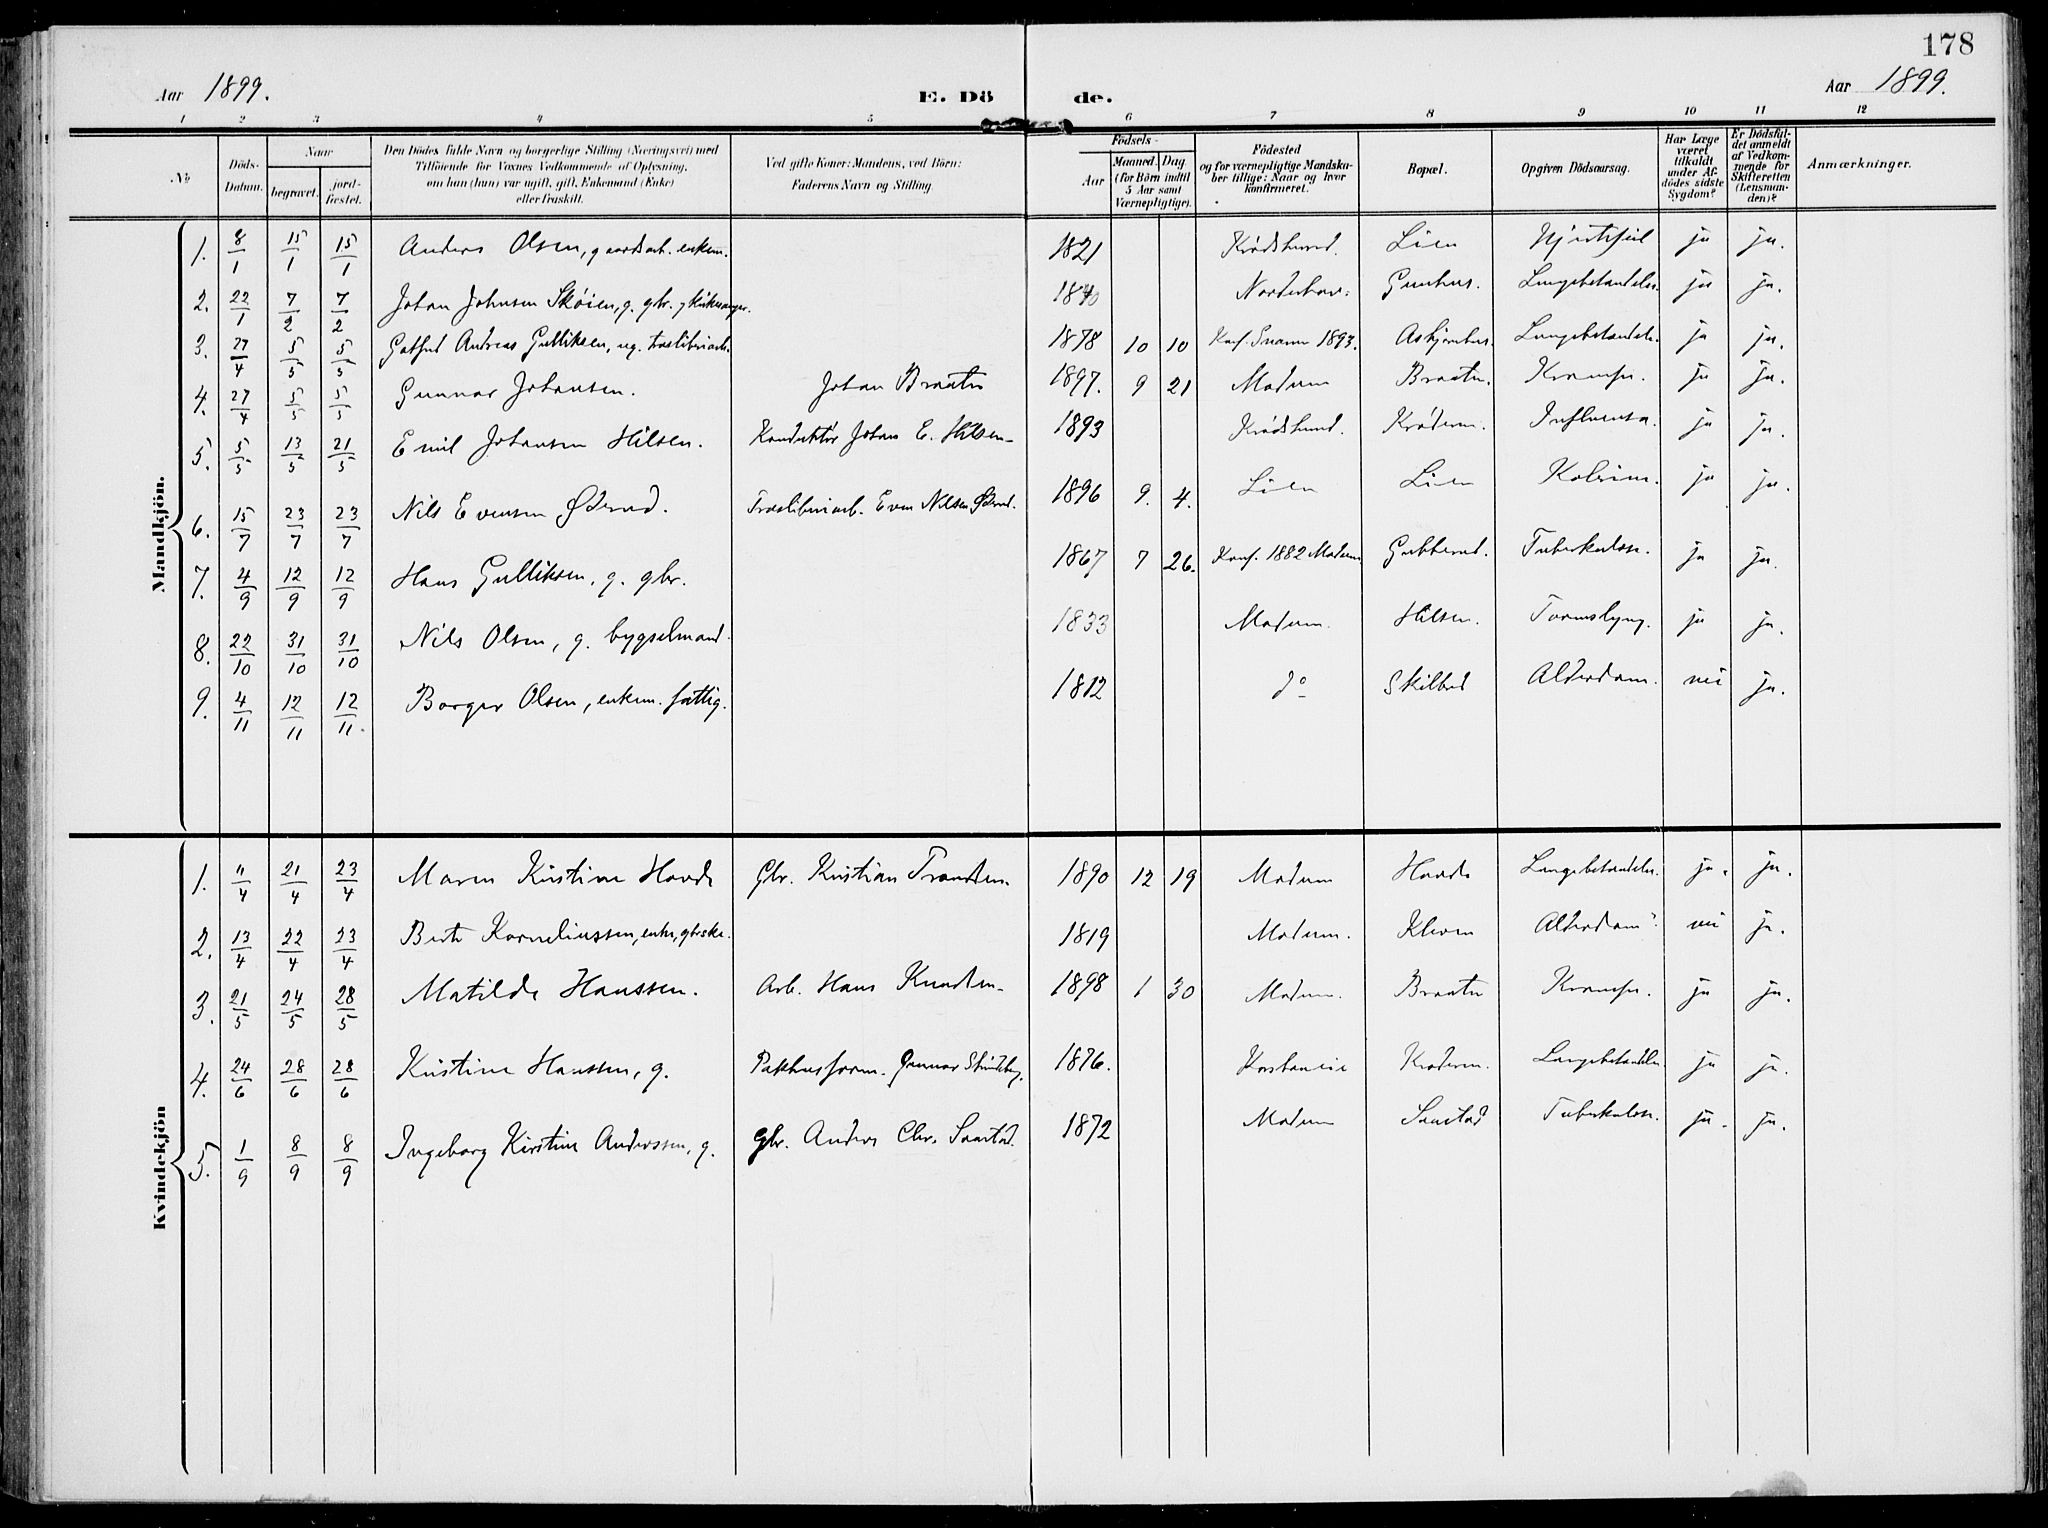 178
Aar 1899.
E. Dö de.
Aar 1899.
1 2 3 4 5 6 7 8 9 10 11 12
№
Döds-Datum.
Naar
begravet.
jord-fæstet.
Den Dödes fulde Navn og borgerlige Stilling (Næringsvei) med
Tilföiende for Voxnes Vedkommende af Oplysning,
om han (hun) var ugift, gift, Enkemand (Enke)
eller fraskilt.
Ved gifte Koner: Mandens, ved Börn:
Faderens Navn og Stilling.
Födsels-
Aar
Maaned. Dag.
(for Börn indtil
5 Aar samt
Værnepligtige).
Födested
og for værnepligtige Mandska-
ber tillige: Naar og hvor
konfirmeret.
Bopæl.
Opgiven Dödsaarsag.
Har Læge
været
tilkaldt
under Af-
dödes sidste
Sygdom?
Er Dödsfal-
det anmeldt
af Vedkom-
mende for
Skifteretten
(Lensman-
den)?
Anmærkninger.
Mandkjön.
1. 8/1 15/1 15/1 Anders Olsen, gaardarb. enkem. 1821 Krødsherad. Lien Hjertefeil ja ja.
2. 22/1 7/2 7/2 Johan Johnsen Skøien, g. gbr. Norderhov. Gunhus. Lungebetændelse. ja ja.
3. 27/4 5/5 5/5 Andreas Gulliksen, ug. træsliberiarb. 1878 10 10 Konf. Snarum 1893. Askjernhus. Lungebetændelse. ja ja.
4. 27/4 5/5 5/5 Gunnar Johansen. Johan Braaten 1897. 9 21 Modum Braaten. Krampe. ja ja.
5. 5/5 13/5 21/5 Emil Johansen Hilsen. Konduktør Johan E. Hilsen 1893 Krødsherad. Krøderen. Influensa. ja ja.
6. 15/7 23/7 23/7 Nils Evensen Øderud. Træsliberiarb. Even Nilsen Øderud. 1896 9. 4. Lien Lien Kolerine. ja ja.
7. 4/9 12/9 12/9 Hans Gulliksen, g. gbr. 1867 7 26. Konf. 1882 Modum Gubberud. Tuberkulose. ja ja.
8. 22/10 31/10 31/10 Nils Olsen, g. bygselmand. 1833 Modum. Hilsen. Tarmslyng. ja ja.
9. 4/11 12/11 12/11. Borger Olsen, enkem. fattig. 1812 do Skilbred Alderdom. nei ja.
Kvindekjön
1. 11/4 21/4 23/4 Maren Kristine Hovde Gbr. Kristian Trondsen 1890 12 19 Modum Hovde Lungebetændelse. ja. ja.
2. 13/4 22/4 23/4 Berte Korneliussen, enke, gbrske. 1819 Modum. Kleven Alderdom. nei ja.
3. 21/5 24/5 28/5 Matilde Hanssen. Arb. Hans Knudsen 1898 1 30 Modum. Braaten Krampe. ja ja.
4. 24/6 28/6 28/6 Kristine Hanssen, g. Pakhusform. Gunnar 1876. Krøderen. Lungebetændelse ja ja.
5. 1/9 8/9 8/9 Ingeborg Kirstine Anderssen, g. gbr. Anders Chr. Saastad. 1872 Modum Saastad Tuberkulose. ja. ja.